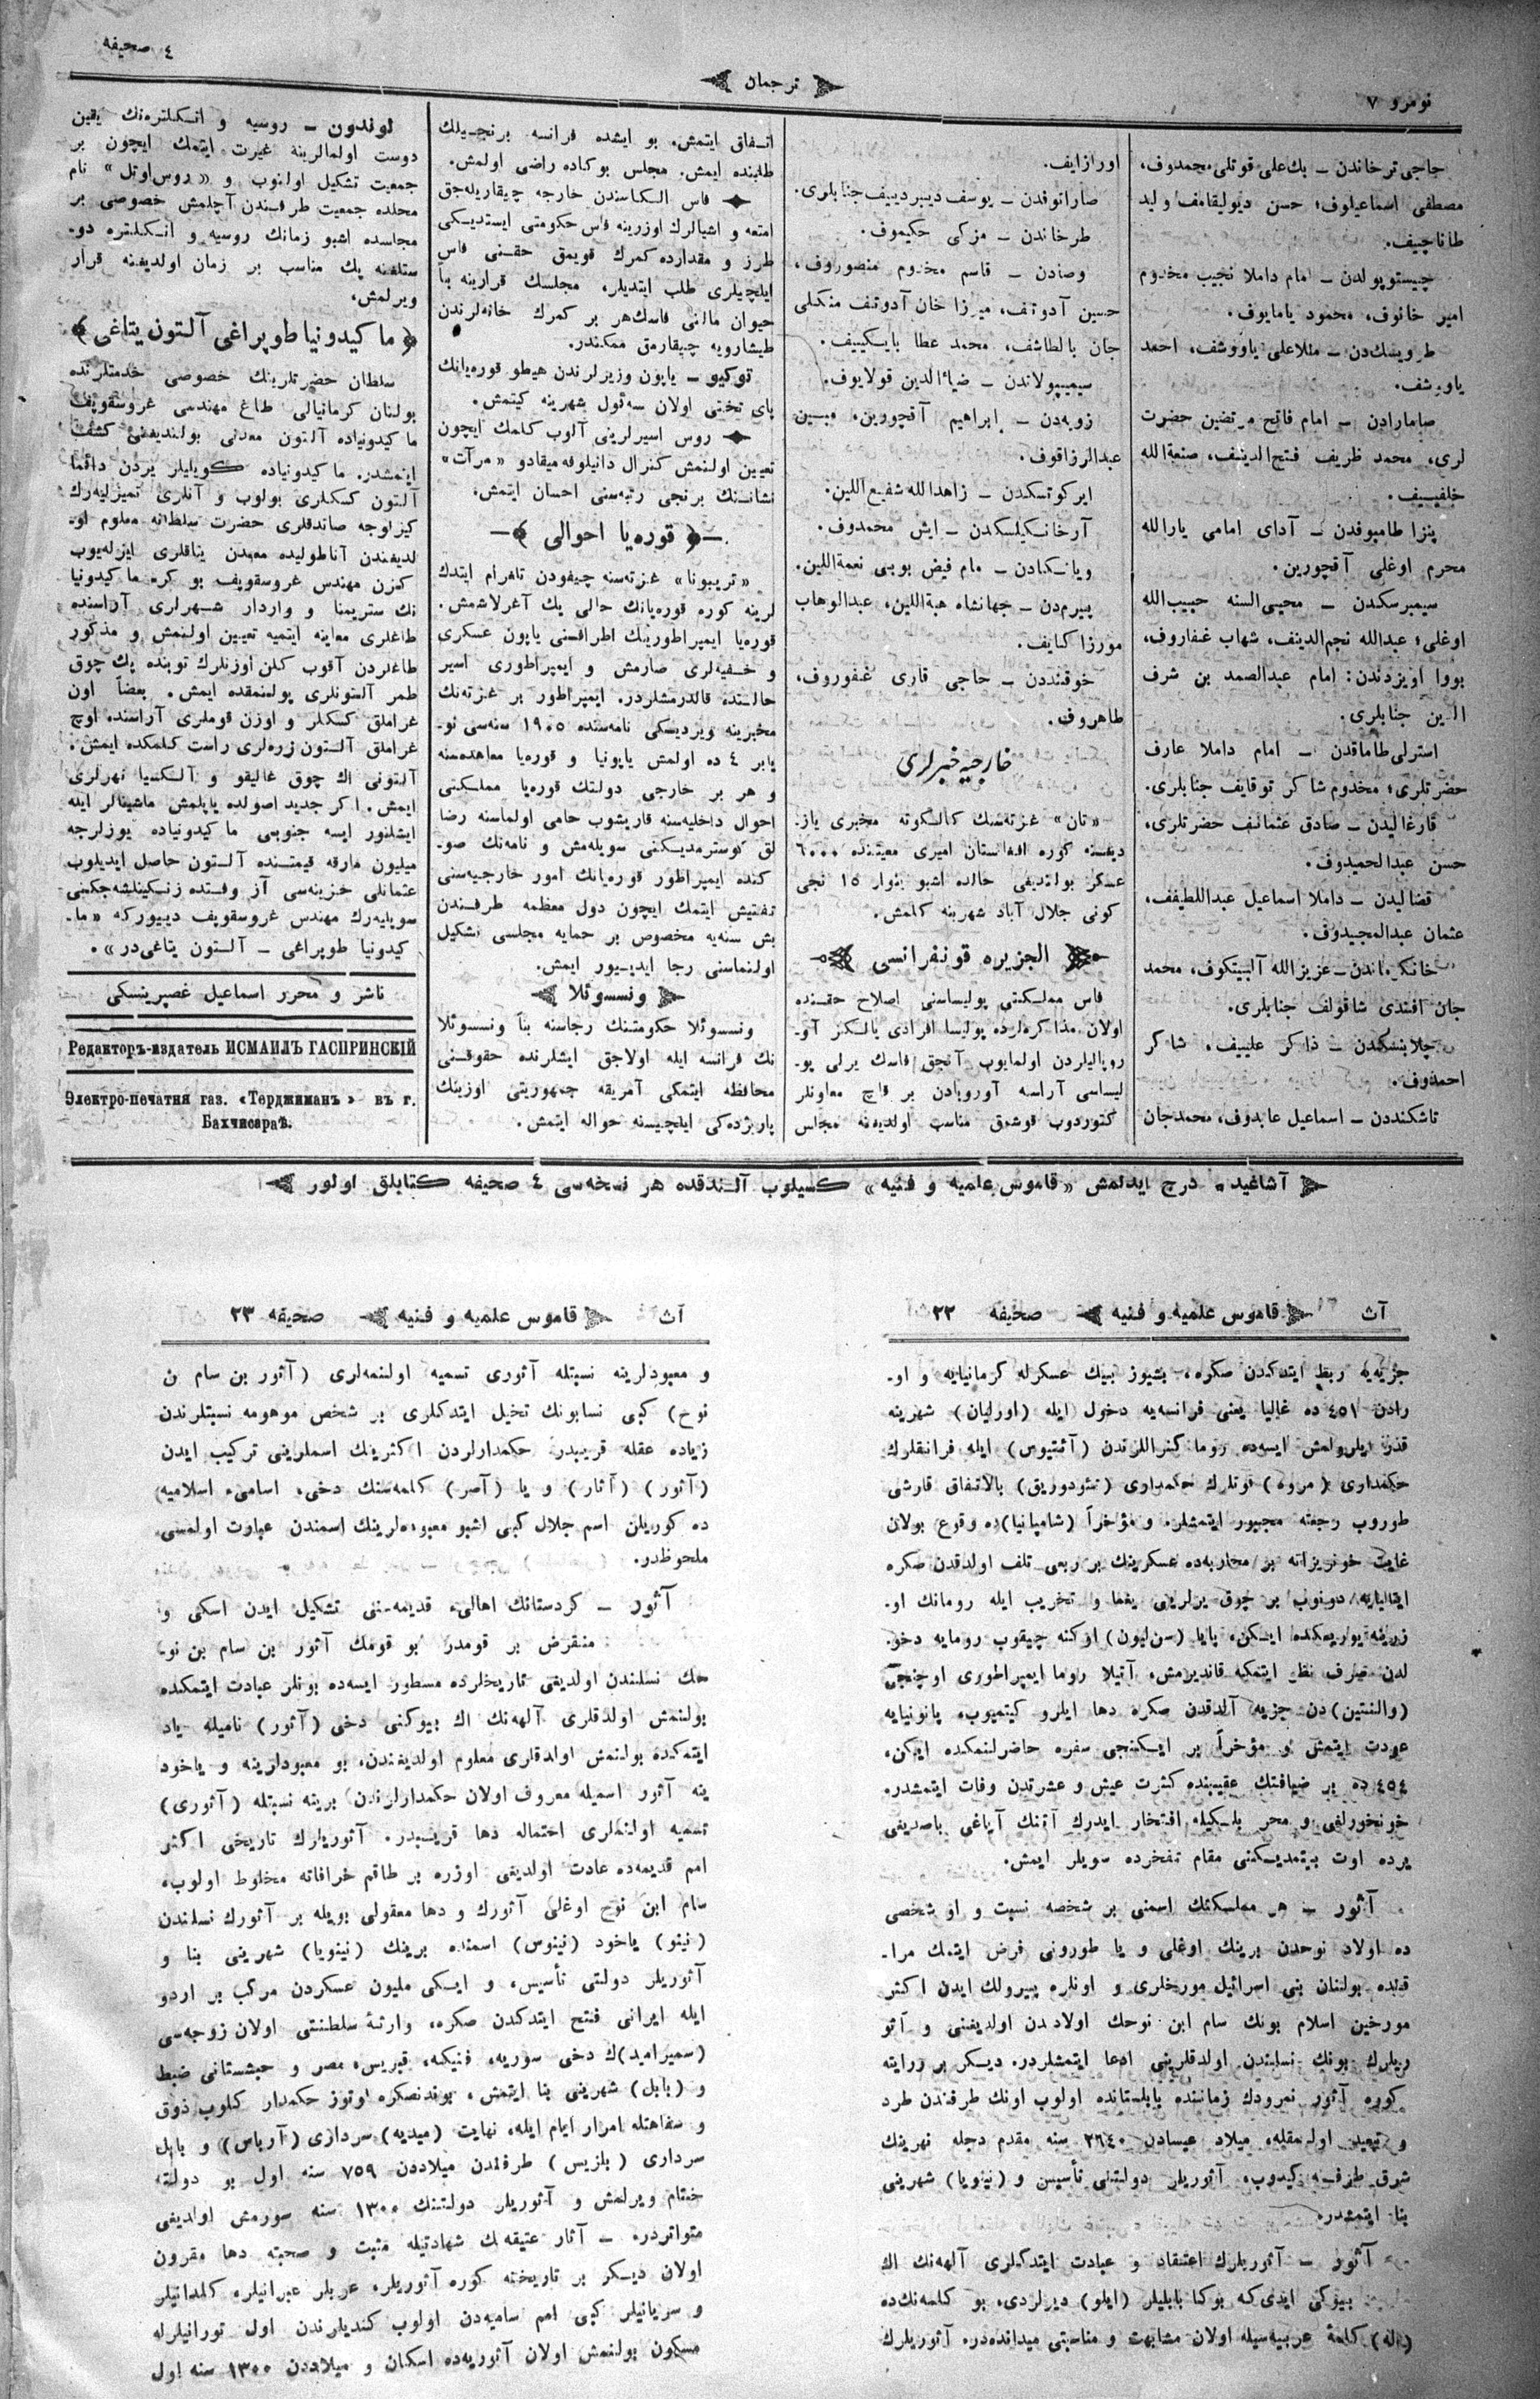 نومرو ٧
ترجمان
٤ صحیفه
حاجی ترخاندن – بك علی قوتلی محمدوف،
مصطفی اسماعیلوف؛ حسن دیولیقامف ولید
طاناچیف.
چیستوپولدن – امام داملا نجیب مخدوم
امیر خانوف، محمود یامایوف.
طرویسك‌دن – منلاعلی یاووشف، احمد
یاوشف.
صامارادن – امام فاتح مرتضین حضرت
لری، محمد ظریف فتح‌الدینف، صنعة‌الله
خلفییف.
پنزا طامبوفدن – آدای امامی یارالله
محرم اوغلی آقچورین.
سیمبرسكدن – محیی‌السنه حبیب‌الله
اوغلی؛ عبدالله نجم‌الدینف، شهاب غفاروف،
بووا اویزدندن: امام عبدالصمد بن شرف
الدین جنابلری.
استرلی طاماقدن – امام داملا عارف
حضرتلری؛ مخدوم شاكر توقایف جنابلری.
قارغالیدن – صادق عثمانف حضرتلری،
حسن عبدالحمیدوف.
قضالیدن – داملا اسماعیل عبداللطیفف،
عثمان عبدالمجیدوف.
خانكرماندن – عزیزالله آلیتكوف، محمد
جان افندی شاقولف جنابلری.
چلابنسكدن – ذاكر علییف، شاكر
احمدوف.
تاشكنددن – اسماعیل عابدوف، محمدجان
اورازایف.
صاراتوفدن – یوسف دیبردییف جنابلری.
طرخاندن – مزكی حكیموف.
وصادن – قاسم مخدوم منصوروف،
حسین آدوتف، میرزا خان آدوتف منكلی
جان بالطاشف، محمد عطا بایكییف.
سیمیپولاتدن – ضیاءالدین قولایوف.
زوبه‌دن – ابراهیم آقچورین، مبین
عبدالرزاقوف.
ایركوتسكدن – زاهدالله شفیع اللین.
آرخانكیلسكدن – ایش محمدوف.
ویاتكادن – امام فیض بوبی نعمة‌اللین.
پیرم‌دن – جهانشاه هبة‌اللین، عبدالوهاب
مورزاكایف.
خوقنددن – حاجی قاری غفوروف،
طاهروف.
خارجیه خبرلری
«تان» غزته‌سنك كالكوته مخبری یاز
دیغنه كوره افغانستان امیری معیتنده ٦٠٠٠
عسكر بولندیغی حالده اشبو ینوار ١٥ نجی
كونی جلال آباد شهرینه كلمش.
الجزیره قونفرانسی
فاس مملكتی پولیساسنی اصلاح حقنده
اولان مذاكره‌لرده پولیسا افرادی یالكز آو-
روپالیلردن اولمایوب آنجق فاسك یرلی پو-
لیساسی آراسه آوروپادن بر قاچ معاونلر
كتوردوب قوشمق مناسب اولدیغنه مجلس
اتفاق ایتمش. بو ایشده فرانسه برنجیلك
طلبنده ایمش. مجلس بوكاده راضی اولمش.
فاس الكاسندن خارجه چیقاریله‌جق
امتعه و اشیالرك اوزرینه فاس حكومتی ایستدیكی
طرز و مقدارده كمرك قویمق حقنی فاس
ایلچیلری طلب ایتدیلر، مجلسك قرارینه بنا
حیوان مالنی فاسك هر بر كمرك خانه‌لرندن
طیشارویه چیقارمق ممكندر.
توكیو – یاپون وزیرلرندن هیطو قوره‌یانك
پای تختی اولان سه‌ئول شهرینه كیتمش.
روس اسیرلرینی آلوب كلمك ایچون
تعیین اولنمش كنرال دانیلوفه میقادو «مرآت»
نشاننك برنجی رتبه‌سنی احسان ایتمش.
قوره‌یا احوالی
«تریبونا» غزته‌سنه چیفودن تلغرام ایتدك
لرینه كوره قوره‌یانك حالی پك آغرلاشمش.
قوره‌یا ایمپراطورینك اطرافنی یاپون عسكری
و خفیه‌لری صارمش و ایمپراطوری اسیر
حالنده قالدرمشلردر. ایمپراطور بر غزته‌نك
مخبرینه ویردیكی نامه‌سنده ١٩٠٥ سنه‌سی نو-
یابر ٤ ده اولمش یاپونیا و قوره‌یا معاهده‌سنه
و هر بر خارجی دولتك قوره‌یا مملكتی
احوال داخلیه‌سنه قاریشوب حامی اولماسنه رضا
لق كوسترمدیكنی سویله‌مش و نامه‌نك صو-
كنده ایمپراطور قوره‌یانك امور خارجیه‌سنی
تفتیش ایتمك ایچون دول معظمه طرفندن
بش سنه‌یه مخصوص بر حمایه مجلسی تشكیل
اولنماسنی رجا ایدیور ایمش.
ونسوئلا
ونسوئلا حكومتنك رجاسنه بناً ونسوئلا
نك فرانسه ایله اولاجق ایشلرنده حقوقنی
محافظه ایتمكی آمریقه جمهوریتی اوزینك
پاریژده‌كی ایلچیسنه حواله ایتمش.
لوندون – روسیه و انكلتره‌نك یقین
دوست اولمالرینه غیرت ایتمك ایچون بر
جمعیت تشكیل اولنوب و «روس اوتل» نام
محلده جمعیت طرفندن آچلمش خصوصی بر
مجلسده اشبو زمانك روسیه و انكلتره دو-
ستلغنه پك مناسب بر زمان اولدیغنه قرار
ویرلمش.
ماكیدونیا طوپراغی آلتون یتاغی
سلطان حضرتلرینك خصوصی خدمتلرنده
بولنان كرمانیالی طاغ مهندسی غروسقوپف
ماكیدونیاده آلتون معدنی بولندیغنی كشف
ایتمشدر. ماكیدونیاده كویلیلر یردن دائما
آلتون كسكلری بولوب و آنلری تمیزلیه‌رك
كیزلوجه صاتدقلری حضرت سلطانه معلوم او-
لدیغندن آناطولیده معدن یتاقلری ایزله‌یوب
كزن مهندس غروسقوپف بو كره ماكیدونیا
نك ستریمنا و واردار شهرلری آراسنده
طاغلری معاینه ایتمیه تعیین اولنمش و مذكور
طاغلردن آقوب كلن اوزنلرك توبنده پك چوق
طمر آلتونلری بولنمقده ایمش. بعضاً اون
غراملق كسكلر و اوزن قوملری آراسنده اوچ
غراملق آلتون زره‌لری راست كلمكده ایمش.
آلتونی اك چوق غالیقو و آلكسیا نهرلری
ایمش. اكر جدید اصولده یاپلمش ماشینالر ایله
ایشلنور ایسه جنوبی ماكیدونیاده یوزلرجه
میلیون مارقه قیمتنده آلتون حاصل ایدیلوب
عثمانلی خزینه‌سی آز وقتده زنكینلشه‌جكنی
سویلیه‌رك مهندس غروسقوپف دییوركه «ما-
كیدونیا طوپراغی – آلتون یتاغی‌در».
ناشر و محرر اسماعیل غصپرینسكی
Редакторъ-издатель ИСМАИЛЪ ГАСПРИНСКІЙ
Электро-печатня газ. «Терджиманъ» въ г.
Бахчисараѣ.
آشاغیده درج ایدلمش «قاموس علمیه و فنیه» كسیلوب آلندقده هر نسخه‌سی ٤ صحیفه كتابلق اولور
آث قاموس علمیه و فنیه صحیفه ٢٢
جزیه‌یه ربط ایتدكدن صكره، بشیوز بیك عسكرله كرمانیایه و او-
رادن ٤٥١ ده غالیا یعنی فرانسه‌یه دخول ایله (اورلیان) شهرینه
قدر ایلرولمش ایسه‌ده روما كنراللرندن (آئتیوس) ایله فرانقلرك
حكمداری (مروه) غوتلرك حكمداری (تئودوریق) بالاتفاق قارشی
طوروب رجعته مجبور ایتمشلر. و مؤخراً (شامپانیا)ده وقوع بولان
غایت خونریزانه بر محاربه‌ده عسكرینك بر ربعی تلف اولدقدن صكره
ایتالیایه دونوب بر چوق یرلرینی یغما و تخریب ایله رومانك او-
زرینه یوریمكده ایكن، پاپا (سن‌لیون) اوكنه چیقوب رومایه دخو-
لدن صرف نظر ایتمكه قاندیرمش. آتیلا روما ایمپراطوری اوچنجی
(والنتین)دن جزیه آلدقدن صكره دها ایلرو كیتمیوب، پانونیایه
عودت ایتمش و مؤخراً بر ایكنجی سفره حاضرلنمكده ایكن،
٤٥٤ ده بر ضیافتك عقیبنده كثرت عیش و عشرتدن وفات ایتمشدر.
خونخورلغی و محر بلكیله افتخار ایدرك آتنك آیاغی باصدیغی
یرده اوت بیتمدیكنی مقام تفخرده سویلر ایمش.
آثور – هر مملكتك اسمنی بر شخصه نسبت و او شخصی
ده اولاد نوحدن برینك اوغلی و یا طورونی فرض ایتمك مرا-
قنده بولنان بنی اسرائیل مورخلری و اونلره پیرولك ایدن اكثر
مورخین اسلام بونك سام ابن نوحك اولادندن اولدیغنی و آثو
ریلرك بونك نسلندن اولدقلرینی ادعا ایتمشلردر. دیكر بر روایته
كوره آثور نمرودك زماننده بابلستانده اولوب اونك طرفندن طرد
و تبعید اولنمقله، میلاد عیسادن ٢٦٤٠ سنه مقدم دجله نهرینك
شرق طرفنه كیدوب، آثوریلر دولتنی تأسیس و (نینویا) شهرینی
بنا ایتمشدر.
آثور – آثوریلرك اعتقاد و عبادت ایتدكلری آلهه‌نك اك
بیوكی ایدی‌كه بوكا بابلیلر (ایلو) دیرلردی، بو كلمه‌نك‌ده
(اله) كلمهٔ عربیه‌سیله اولان مشابهت و مناسبتی میدانده‌در. آثوریلرك
آث قاموس علمیه و فنیه صحیفه ٢٣
و معبودلرینه نسبتله آثوری تسمیه اولنمه‌لری (آثور بن سام بن
نوح) كبی نسابونك تخیل ایتدكلری بر شخص موهومه نسبتلرندن
زیاده عقله قریبدر. حكمدارلردن اكثرینك اسملرینی تركیب ایدن
(آثور) (آثار) و یا (آصر) كلمه‌سنك دخی، اسامیء اسلامیه
ده كوریلن اسم جلال كبی اشبو معبوده‌لرینك اسمندن عبارت اولمسی
ملحوظدر.
آثور – كردستانك اهالیء قدیمه‌سنی تشكیل ایدن اسكی و
منقرض بر قومدر بو قومك آثور بن سام بن نو-
حك نسلندن اولدیغی تاریخلرده مسطور ایسه‌ده بونلر عبادت ایتمكده
بولنمش اولدقلری آلهه‌نك اك بیوكنی دخی (آثور) نامیله یاد
ایتمكده بولنمش اولدقلری معلوم اولدیغندن، بو معبودلرینه و یاخود
ینه آثور اسمیله معروف اولان حكمدارلرندن برینه نسبتله (آثوری)
تسمیه اولنملری احتماله دها قریبدر. آثوریلرك تاریخی اكثر
امم قدیمه‌ده عادت اولدیغی اوزره بر طاقم خرافاته مخلوط اولوب،
سام ابن نوح اوغلی آثورك و دها معقولی بویله بر آثورك نسلندن
(نینو) یاخود (نینوس) اسمنده برینك (نینویا) شهرینی بنا و
آثوریلر دولتی تأسیس، و ایكی ملیون عسكردن مركب بر اردو
ایله ایرانی فتح ایتدكدن صكره، وارثهٔ سلطنتی اولان زوجه‌سی
(سمیرامید)ك دخی سوریه، فنیكه، قبریس، مصر و حبشستانی ضبط
و (بابل) شهرینی بنا ایتمش، بوندنصكره اوتوز حكمدار كلوب ذوق
و سفاهتله امرار ایام ایله، نهایت (میدیه) سرداری (آرباس) و بابل
سرداری (بلزیس) طرفلندن میلاددن ٧٥٩ سنه اول بو دولته
ختام ویرلمش و آثوریلر دولتنك ١٣٠٠ سنه سورمش اولدیغی
متواتردر. – آثار عتیقه‌نك شهادتیله مثبت و صحته دها مقرون
اولان دیكر بر تاریخته كوره آثوریلر، عربلر عبرانیلر، كلدانیلر
و سریانیلر كبی امم سامیه‌دن اولوب كندیلرندن اول تورانیلرله
مسكون بولنمش اولان آثوریه‌ده اسكان و میلاددن ١٣٠٠ سنه اول